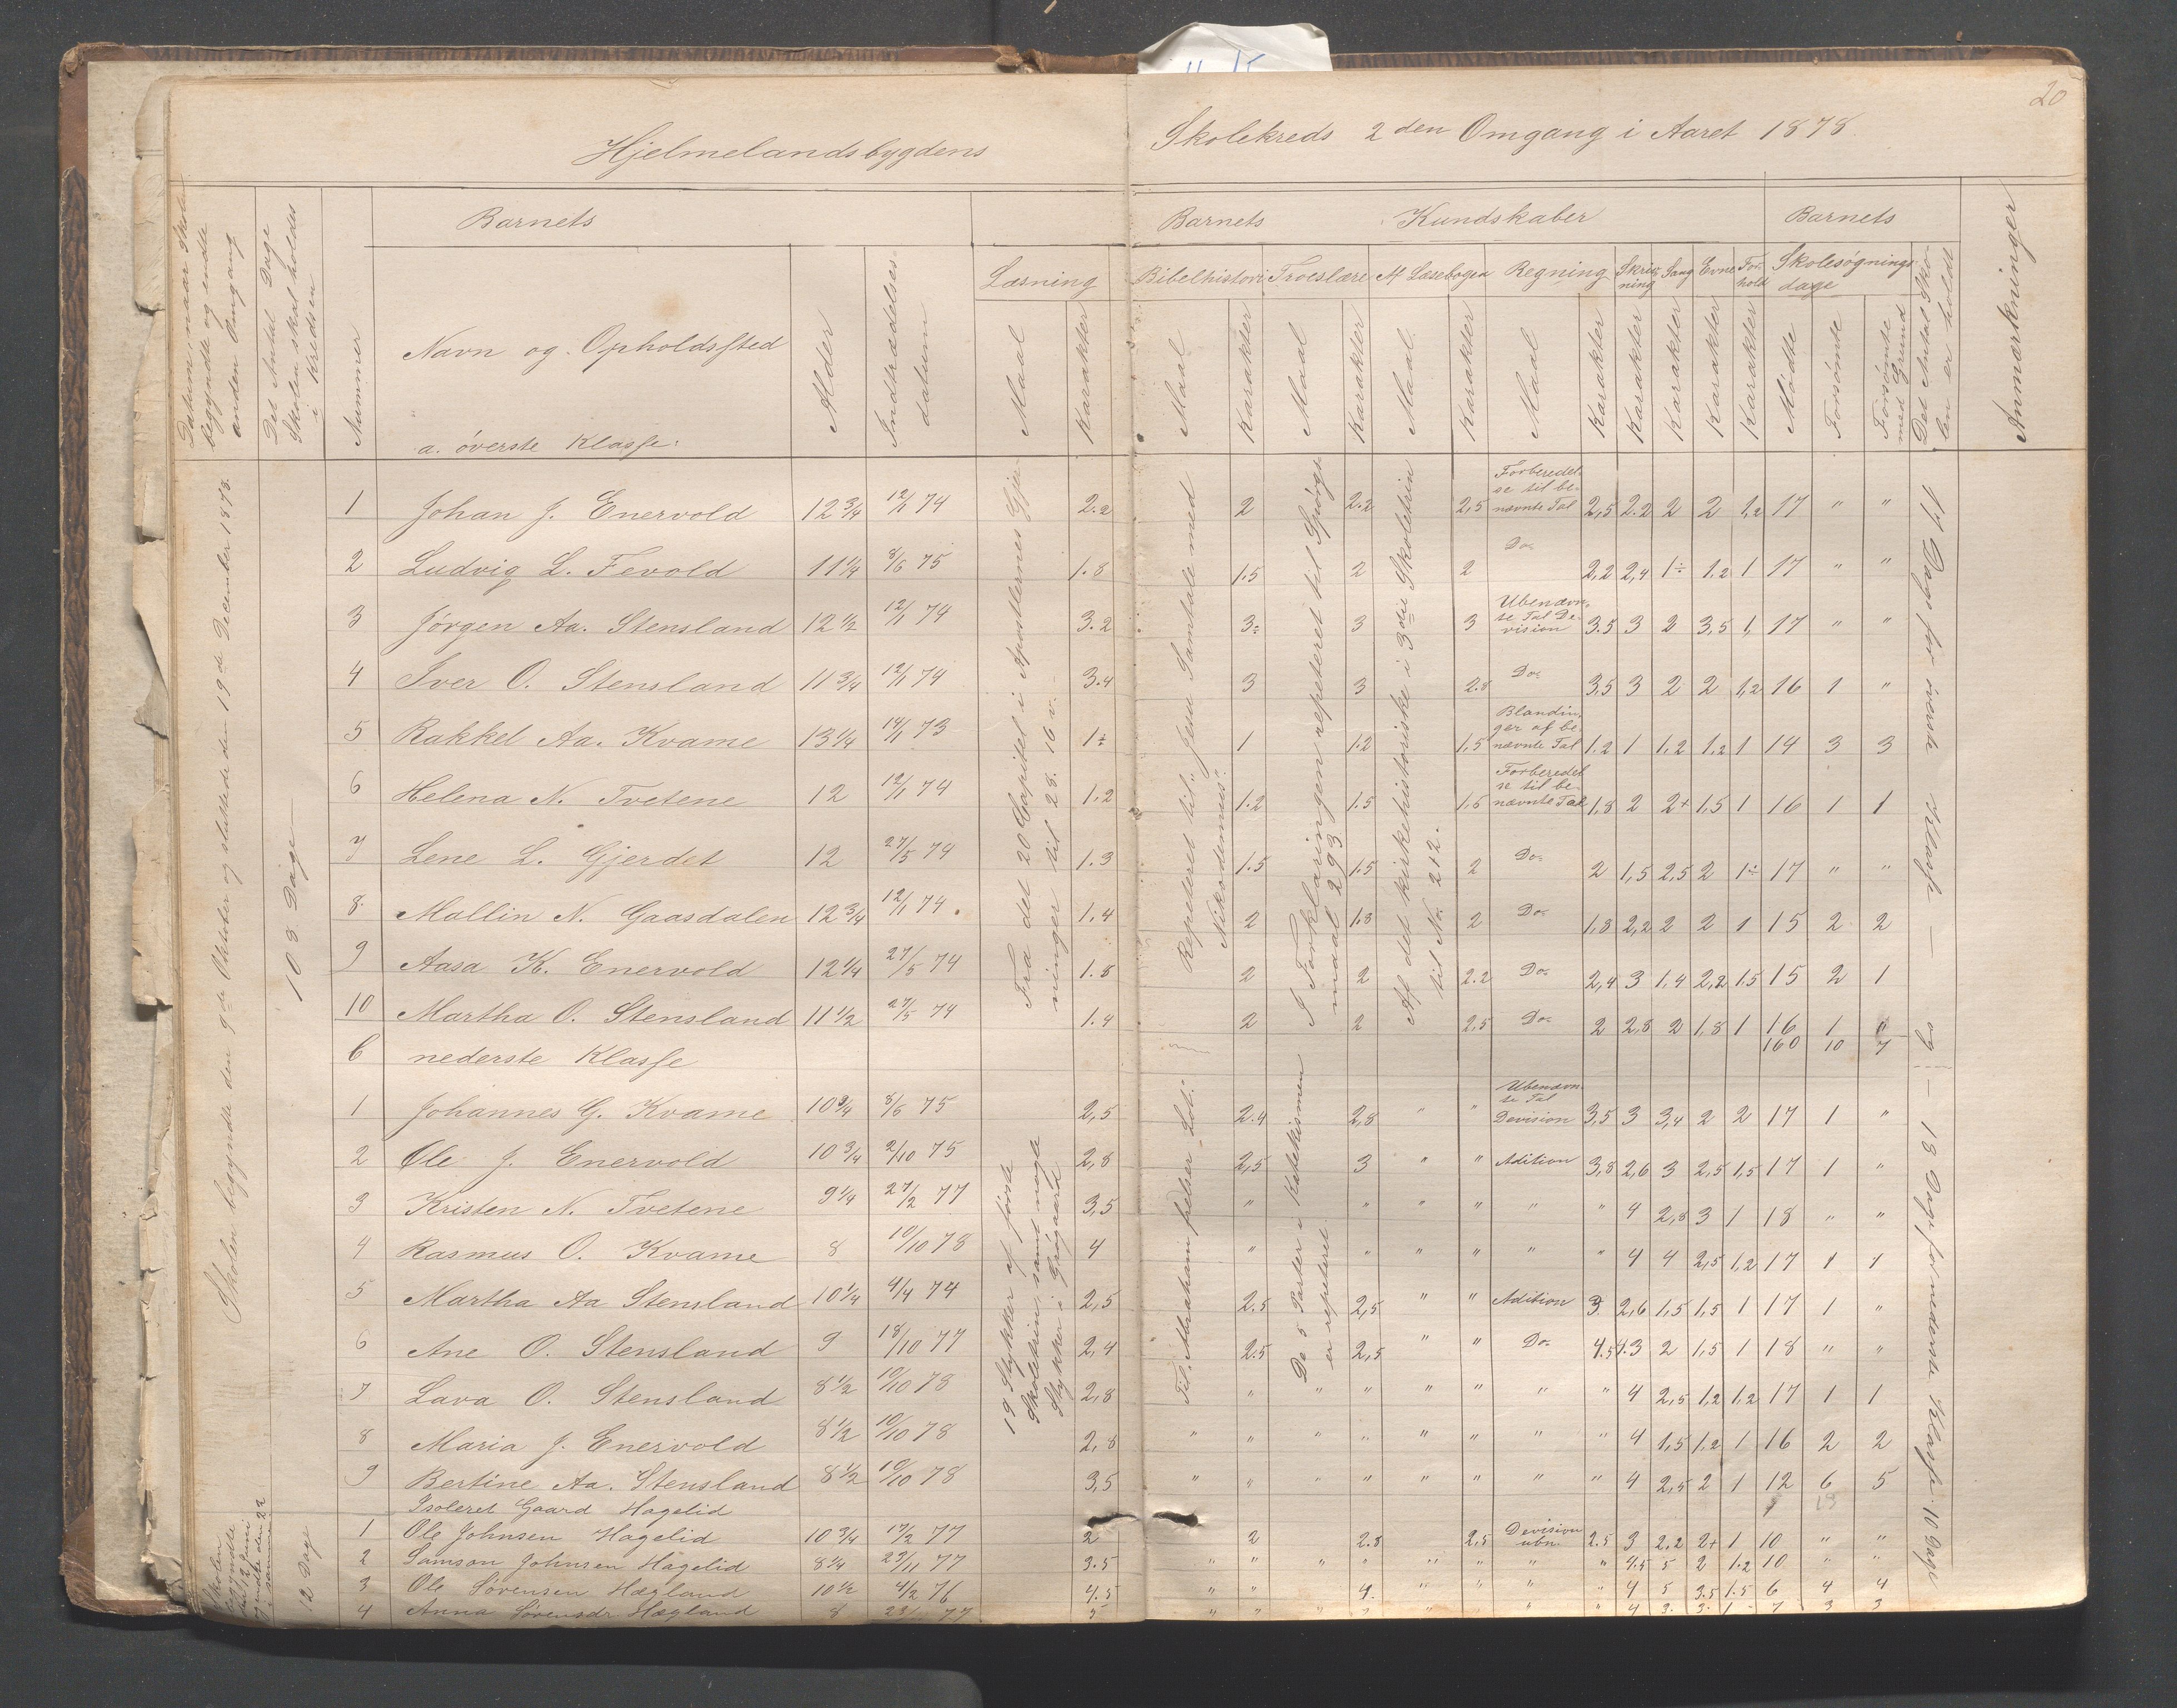 20
Hjelmelandsbygdens Skolekreds 2den Omgang i Aaret 1878
Datum naar Skolen begyndte og endte anden Omgang
Det Antal Dage Skolen skal holdes i Kredsen
Nummer
Barnets
Navn og Opholdssted
Alder
Indtrædelsesdatum
Læsning
Maal Karakter
Barnets Kundskaber
Bibelhistori Troeslære Af Læsebogen Regning Skrivning Sang Evne Forhold
Maal Karakter Maal Karakter Maal Karakter Maal Karakter Karakter Karakter Karakter Karakter
Barnets
Skolesøgningsdage
Mødte Forsømte Forsømte med Grund
Det Antal Skolen er holdt
Anmærkninger
a. øverste Klasse:
Skolen begyndte den 9de Oktober og sluttede den 19de December 1878.
103 Dage
Fra det 20 Capitel i Apostlernes Gjerninger til 28. 16 v.
Repederet til "Jesu Samtale med Nikodemus".
I Forklaringen repeteret til Spørgsmaal 293
Af det kirkehistoriske i 3die Skoletrin til No. 212.
17 Dage for øverste Klasse — og — 18 Dage for nederste Klasse. 10 Dage
1 Johan J. Enervold 12 3/4 12/1 74 2.2 2 2.2 2,5 Forberedelse til benævnte Tal 2,5 2.2 2 2 1,2 17 " "
2 Ludvig L. Fevold 11 1/4 8/6 75 1.8 1.5 2 2 Do- 2,2 2,4 1÷ 1.2 1 17 " "
3 Jørgen Aa. Stensland 12 1/2 12/1 74 3.2 3: 3 3 Ubenævnte Tal Devision 3.5 3 2 3,5 1, 17 " "
4 Iver O. Stensland 11 3/4 12/1 74 3.4 3 3 2.8 Do- 3,5 3 2 2 1,2 16 1 "
5 Rakkel Aa. Kvame 13 1/4 14/1 73 1÷ 1 1.2 1.5 Blandinger af benævnte Tal 1.2 1 1,2 1.2 1 14 3 3
6 Helena N. Tvetene 12 12/1 74 1.2 1.2 1.5 1.5 Forberedelse til benævnte Tal 1,8 2 2+ 1,5 1 16 1 1
7 Lene L. Gjerdet 12 27/5 74 1.3 1.5 1.5 2 Do- 2 1,5 2,5 2 1÷ 17 " "
8. Mallin N. Gaasdalen 12 3/4 12/1 74. 1,4 2 1.8 2 Do- 1,8 2,2 2 2 1 15 2 2
9 Aasa K. Enervold 12 1/4 27/5 74 1.8 2 2 2.2 Do- 2,4 3 1,4 2,2 1.5 15 2 1
10 Martha O. Stensland 11 1/2 27/5 74 1.4 2 2 2,5 Do- 2 2,8 2 1,8 1 16 1
160 10 7
b nederste Klasse
19 Stykker af første Skoletrin samt nogle Stykker i
Til "Abraham frelser Lot".
De 5 Parter i Katekismen er repeteret.
1 Johannes G. Kvame 10 3/4 8/6 75 2,5 2.4 2,8 " " Ubenævnte Tal Devision 3,5 3 3,4 2 2 17 1 "
2 Ole J. Enervold 10 3/4 2/10 75 2,8 2,5 3 " " Adition 3,8 2,6 3 2,5 1,5 17 1 "
3 Kristen N. Tvetene 9 1/4 27/2 77 3,5 " " " " " " 4 2,8 3 1 18 " "
4 Rasmus O. Kvame 8 10/10 78 4 " " " " " " 4 4 2,5 1,2 17 1 1
5 Martha Aa Stensland 10 1/4 4/4 74 2,5 2.5 2,5 " " Adition 3. 2,6 1,5 1,5 1 17 1 "
6 Ane O. Stensland 9 18/10 77 2,4 2.5 2,5 " " Do- 4.5 3 2 1,5 1 18 " "
7 Lava O. Stensland 8 1/2 10/10 78 2,8 " " " " " " " 4 2,5 1,2 1,2 17 1 1
8 Maria J. Enervold 8 1/2 10/10 78 2,8 " " " " " " " " 4 1,5 1,2 1 16 2 2
9 Bertine Aa. Stensland 8 1/2 10/10 78 3,5 " " " " " " " " 4 2,5 2 1 12 6 5
Isoleret Gaard Hagelid
Skolen begyndte den 12 Juni
12 Dage
1 Ole Johnsen Hagelid 10 3/4 17/2 77 2 2 2.8 2,5 Devision ubn. 2.5 3 2.2 2+ 1 10 " "
2 Samson Johnsen Hagelid 8 1/4 23/11 77 3.5 " " " " " " " " 4.5 5 2 1.2 10 " "
3 Ole Sørensen Hægland 10 1/2 4/2 76 4.5 " " 4. " " " " 4 5 3.5 1.5 6 4 4
4 Anna Sørensdr Hægland 8 77 5 " " " " " " " " 4 3. 3. 1 7 3 3